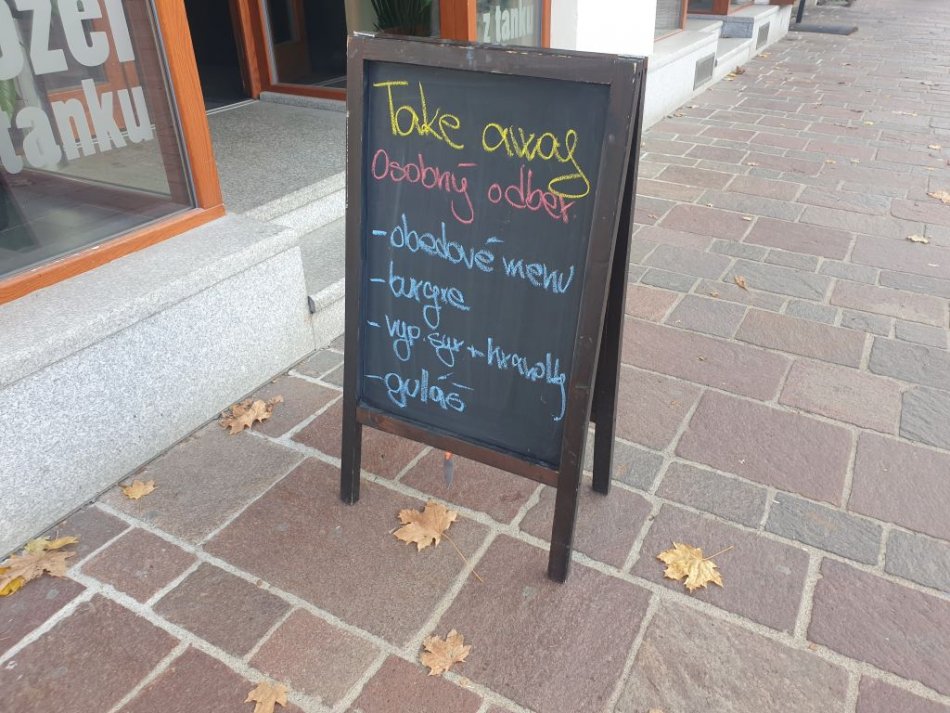 ozel
z tanku
z tanku
Take away
Osobný odber
- obedové menu
- burgre
- vyp. syr + hranolky
- guláš